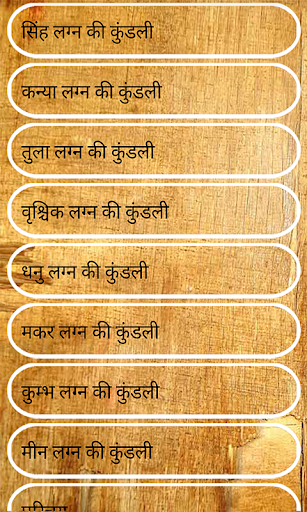 सिंह लग्न की कुंडली
कन्या लग्न की कुंडली
तुला लग्न की कुंडली
वृश्चिक लग्न की कुंडली
धनु लग्न की कुंडली
मकर लग्न की कुंडली
कुम्भ लग्न की कुंडली
मीन लग्न की कुंडली